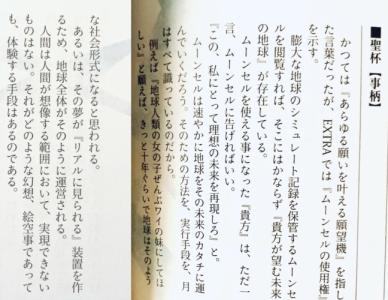 ■聖杯【事柄】
かつては『あらゆる願いを叶える願望機』を指し
た言葉だったが、EXTRAでは『ムーンセルの使用権』
を示す。
膨大な地球のシミュレート記録を保管するムーンセ
ルを閲覧すれば、そこにはかならず『貴方が望む未来
の地球』が存在している。
ムーンセルを使える事になった『貴方』は、ただ一
言、ムーンセルに告げればいい。
『この、私にとって理想の未来を再現しろ』と。
ムーンセルは速やかに地球をその未来のカタチに運
んでいくだろう。そのための方法を、実行手段を、月
はすべて識っているのだから。
例えば『地球人類の女の子ぜんぶワイの妹にしてほ
しい』と願えば、きっと十年ぐらいで地球はそのよう
な社会形式になると思われる。
あるいは、その夢が『リアルに見られる』装置を作
るため、地球全体がそのように運営される。
人間は人間が想像する範囲において、実現できない
ものはない。それがどのような幻想、絵空事であって
も、体験する手段はあるのである。